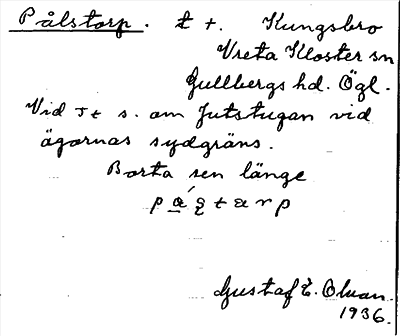 Pålstorp. t +. Kungsbro
Vreta Kloster sn
Gullbergs hd. Ögl.
Vid st s. om Jutstugan vid
ägornas sydgräns.
Borta sen länge
Gustaf E. Olvan.
1936.